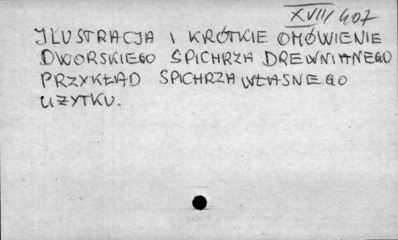 XVII/407
ILUSTRACJA I KRÓTKIE OMÓWIENIE
DWORSKIEGO SPICHRZA DREWNIANEGO
PRZYKŁAD SPICHRZA WŁASNEGO
UŻYTKU.